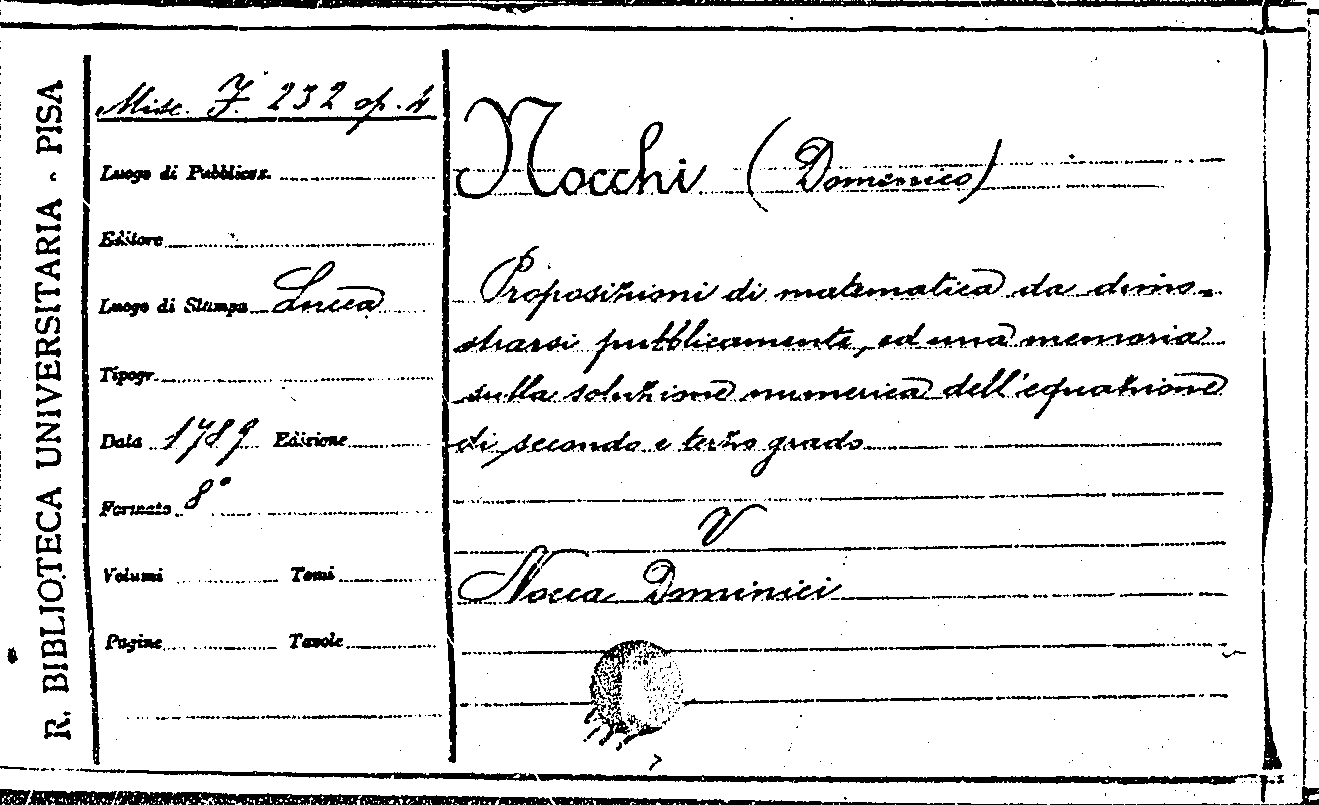 R. BIBLIOTECA UNIVERSITARIA - PISA
Misc. F. 232 op. 4
Luogo di Pubblicaz.
Editore
Luogo di Stampa Lucca
Tipogr.
Data 1789 Edizione
Formato 8°
Volumi Tomi
Pagine Tavole
Nocchi (Domenico)
Proposizioni di matematica da dimo-
strarsi pubblicamente, ed una memoria
sulla soluzione numerica dell'equazione
di secondo e terzo grado
V
Nocca Dominici